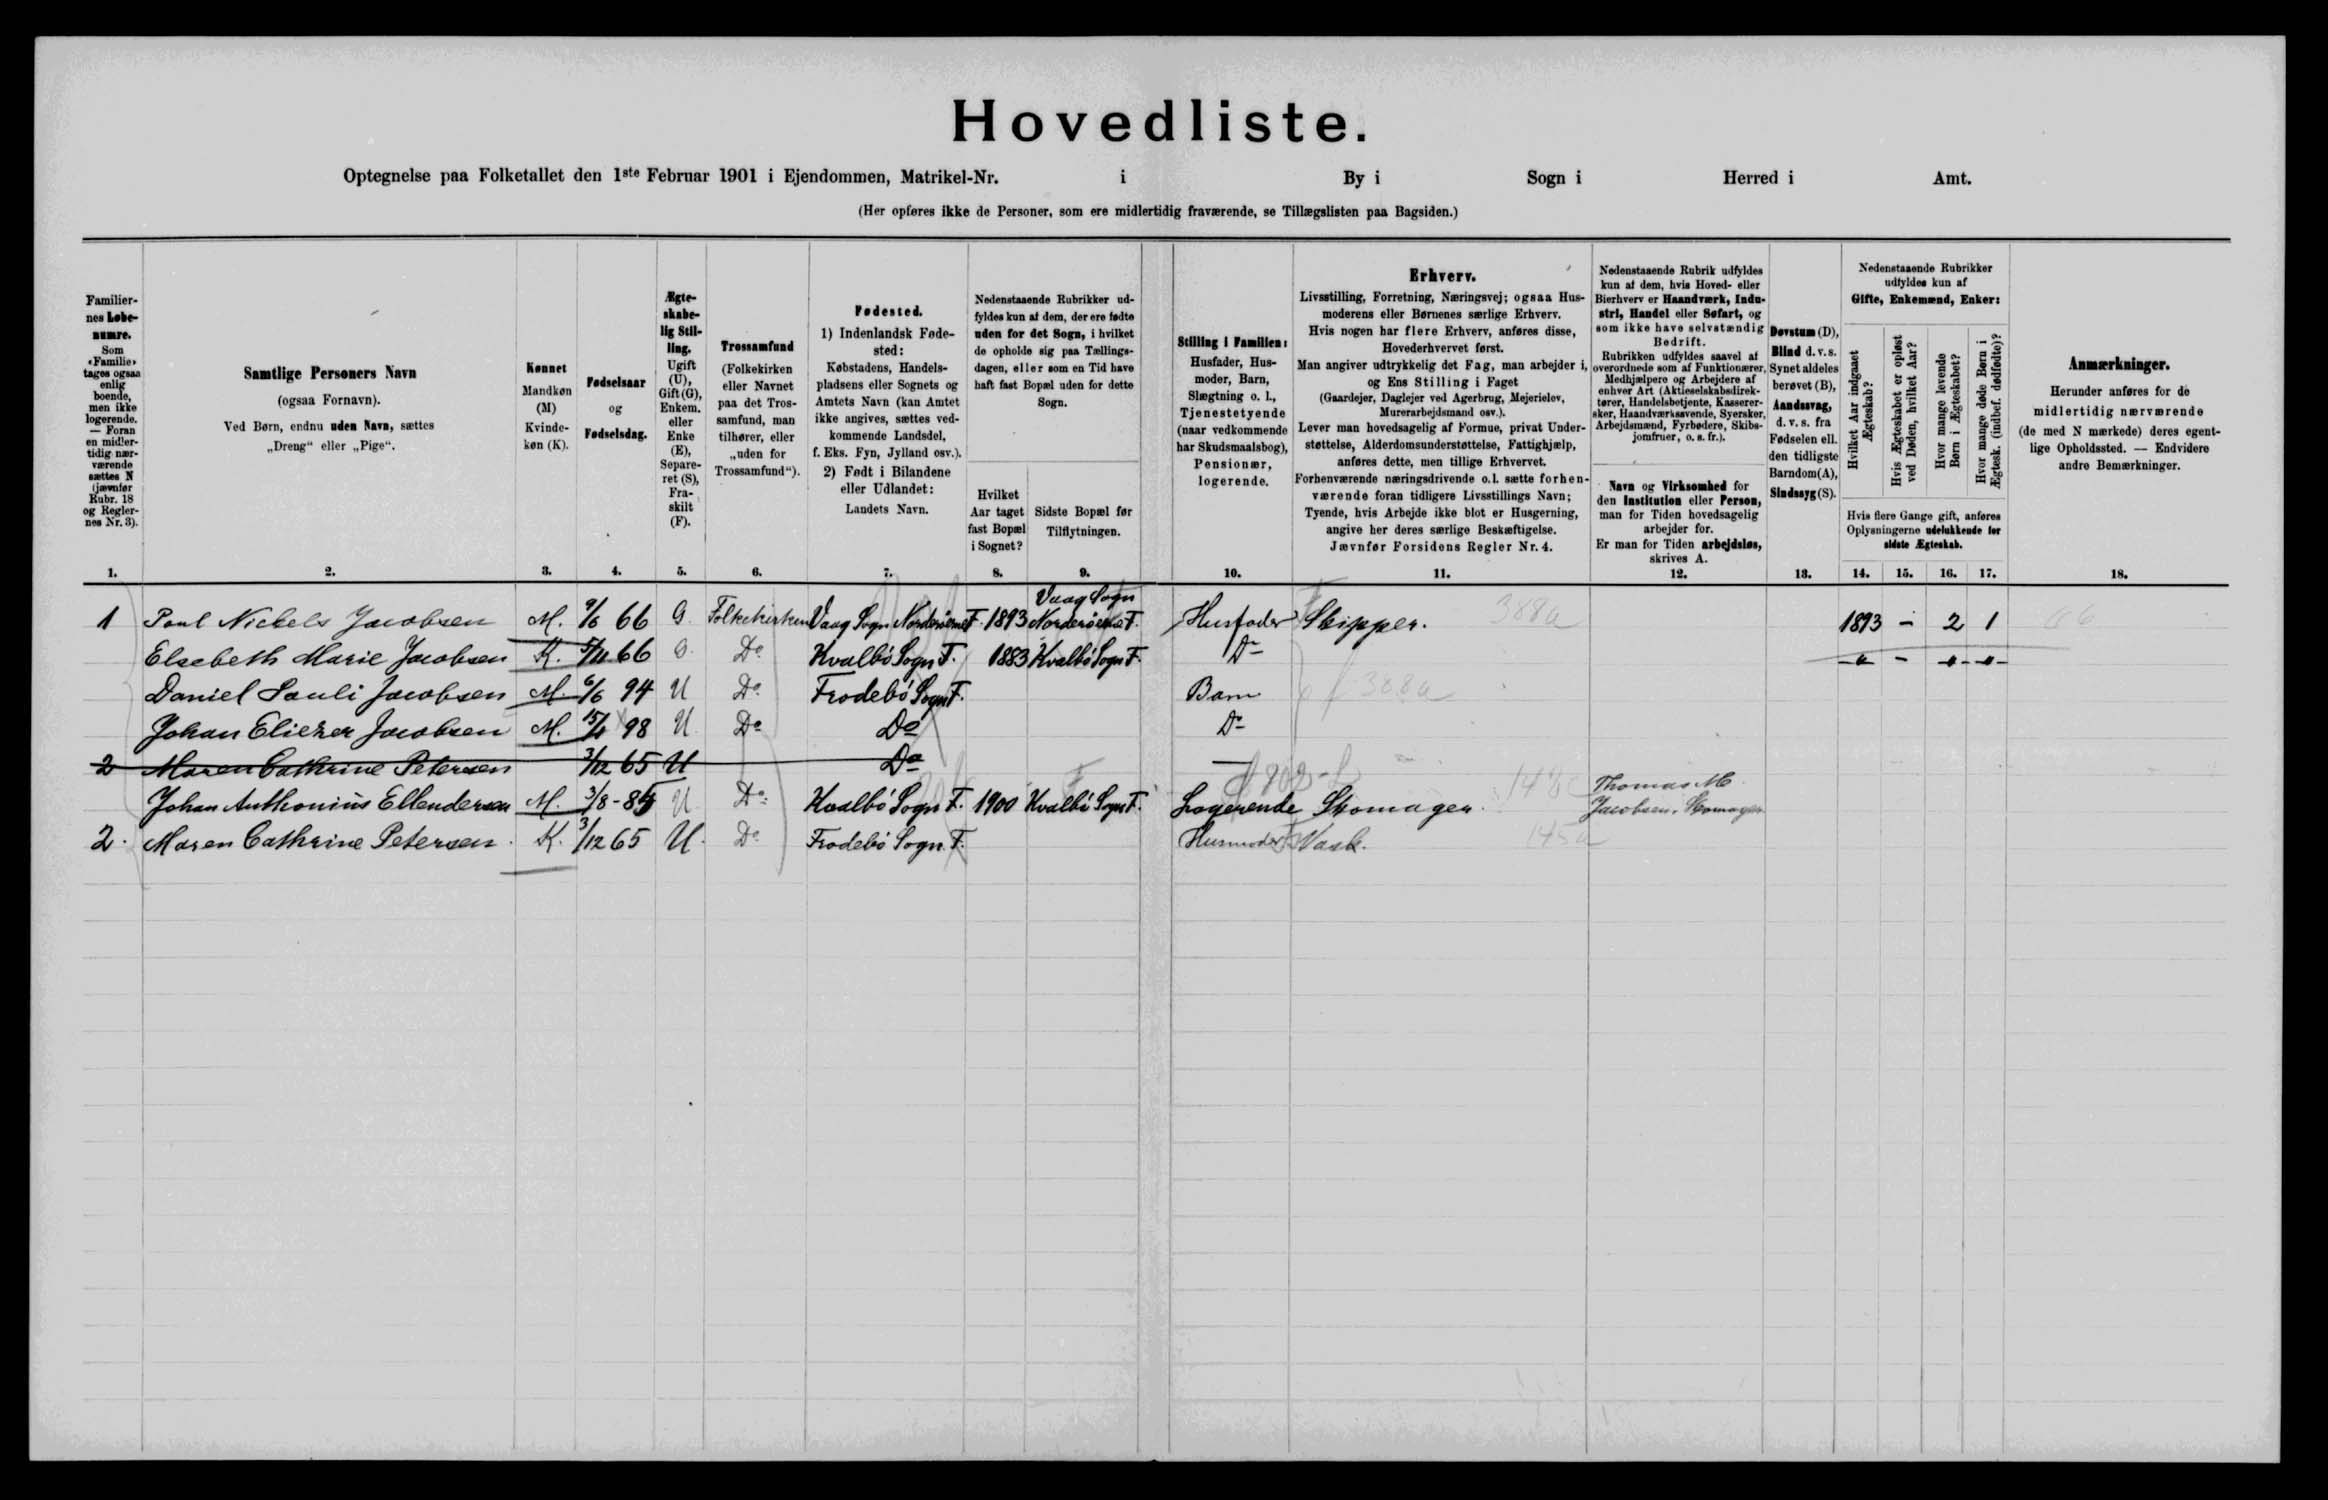 Hovedliste.
Optegnelse paa Folketallet den 1ste Februar 1901 i Ejendommen, Matrikel-Nr. i By i Sogn i Herred i Amt.
(Her opføres ikke de Personer, som ere midlertidig fraværende, se Tillægslisten paa Bagsiden.)
Familier-
nes Løbe-
numre.
Som
«Familie»
tages ogsaa
enlig
boende,
men ikke
logerende.
— Foran
en midler-
tidig nær-
værende
sættes N
(jævnfør
Rubr. 18
og Regler-
nes Nr. 3).
1.
Samtlige Personers Navn
(ogsaa Fornavn).
Ved Børn, endnu uden Navn, sættes
„Dreng“ eller „Pige“.
2.
Kønnet
Mandkøn
(M)
Kvinde-
køn (K).
3.
Fødselsaar
og
Fødselsdag.
4.
Ægte-
skabe-
lig Stil-
ling.
Ugift
(U),
Gift (G),
Enkem.
eller
Enke
(E),
Separe-
ret (S),
Fra-
skilt
(F).
5.
Trossamfund
(Folkekirken
eller Navnet
paa det Tros-
samfund, man
tilhører, eller
„uden for
Trossamfund“).
6.
Fødested.
1) Indenlandsk Føde-
sted:
Købstadens, Handels-
pladsens eller Sognets og
Amtets Navn (kan Amtet
ikke angives, sættes ved-
kommende Landsdel,
f. Eks. Fyn, Jylland osv.).
2) Født i Bilandene
eller Udlandet:
Landets Navn.
7.
Nedenstaaende Rubrikker ud-
fyldes kun af dem, der ere fødte
uden for det Sogn, i hvilket
de opholde sig paa Tællings-
dagen, eller som en Tid have
haft fast Bopæl uden for dette
Sogn.
Hvilket
Aar taget
fast Bopæl
i Sognet?
8.
Sidste Bopæl før
Tilflytningen.
9.
Stilling i Familien:
Husfader, Hus-
moder, Barn,
Slægtning o. l.,
Tjenestetyende
(naar vedkommende
har Skudsmaalsbog),
Pensionær,
logerende.
10.
Erhverv.
Livsstilling, Forretning, Næringsvej; ogsaa Hus-
moderens eller Børnenes særlige Erhverv.
Hvis nogen har flere Erhverv, anføres disse,
Hovederhvervet først.
Man angiver udtrykkelig det Fag, man arbejder i,
og Ens Stilling i Faget
(Gaardejer, Daglejer ved Agerbrug, Mejerielev,
Murerarbejdsmand osv.).
Lever man hovedsagelig af Formue, privat Under-
støttelse, Alderdomsunderstøttelse, Fattighjælp,
anføres dette, men tillige Erhvervet.
Forhenværende næringsdrivende o.l. sætte forhen-
værende foran tidligere Livsstillings Navn;
Tyende, hvis Arbejde ikke blot er Husgerning,
angive her deres særlige Beskæftigelse.
Jævnfør Forsidens Regler Nr. 4.
11.
Nedenstaaende Rubrik udfyldes
kun af dem, hvis Hoved- eller
Bierhverv er Haandværk, Indu-
stri, Handel eller Søfart, og
som ikke have selvstændig
Bedrift.
Rubrikken udfyldes saavel af
overordnede som af Funktionærer,
Medhjælpere og Arbejdere af
enhver Art (Aktieselskabsdirek-
tører, Handelsbetjente, Kasserer-
sker, Haandværkssvende, Syersker,
Arbejdsmænd, Fyrbødere, Skibs-
jomfruer, o. s. fr.).
Navn og Virksomhed for
den Institution eller Person,
man for Tiden hovedsagelig
arbejder for.
Er man for Tiden arbejdsløs,
skrives A.
12.
Døvstum (D),
Blind d.v.s.
Synet aldeles
berøvet (B),
Aandssvag,
d. v. s. fra
Fødselen ell.
den tidligste
Barndom (A),
Sindssyg (S).
13.
Nedenstaaende Rubrikker
udfyldes kun af
Gifte, Enkemænd, Enker:
Hvilket Aar indgaaet
Ægteskab?
Hvis Ægteskabet er opløst
ved Døden, hvilket Aar?
Hvor mange levende
Børn i Ægteskabet?
Hvor mange døde Børn i
Ægtesk. (indbef. dødfødte)?
Hvis flere Gange gift, anføres
Oplysningerne udelukkende for
sidste Ægteskab.
14. 15. 16. 17.
Anmærkninger.
Herunder anføres for de
midlertidig nærværende
(de med N mærkede) deres egent-
lige Opholdssted. — Endvidere
andre Bemærkninger.
18.
Vaag Sogn
1 Poul Nickels Jacobsen M. 9/6 66 G. Folkekirken Vaag Sogn Norderöerne F. 1893 Norderöerne F. Husfader Skipper. 388a 1893 - 2 1
Elsebeth Marie Jacobsen K. 5/11 66 G. Do Kvalbö Sogn F. 1883 Kvalbö Sogn F. Do -"- - -"- -"-
Daniel Pauli Jacobsen M. 6/6 94 U Do Frodebö Sogn F. Barn f 388a
Johan Eliezer Jacobsen M. 98 U. Do Do Do
2 Maren Cathrine Petersen 3/12 65 U Do
Johan Anthonius Ellendersen M. 3/8-85 U Do Kvalbö Sogn F. 1900 Kvalbö Sogn F. Logerende Skomager. Thomas M.
Jacobsen. Skomager
2. Maren Cathrine Petersen. K. 3/12 65 U. Do Frodebö Sogn. F. Husmoder Vask. 145a